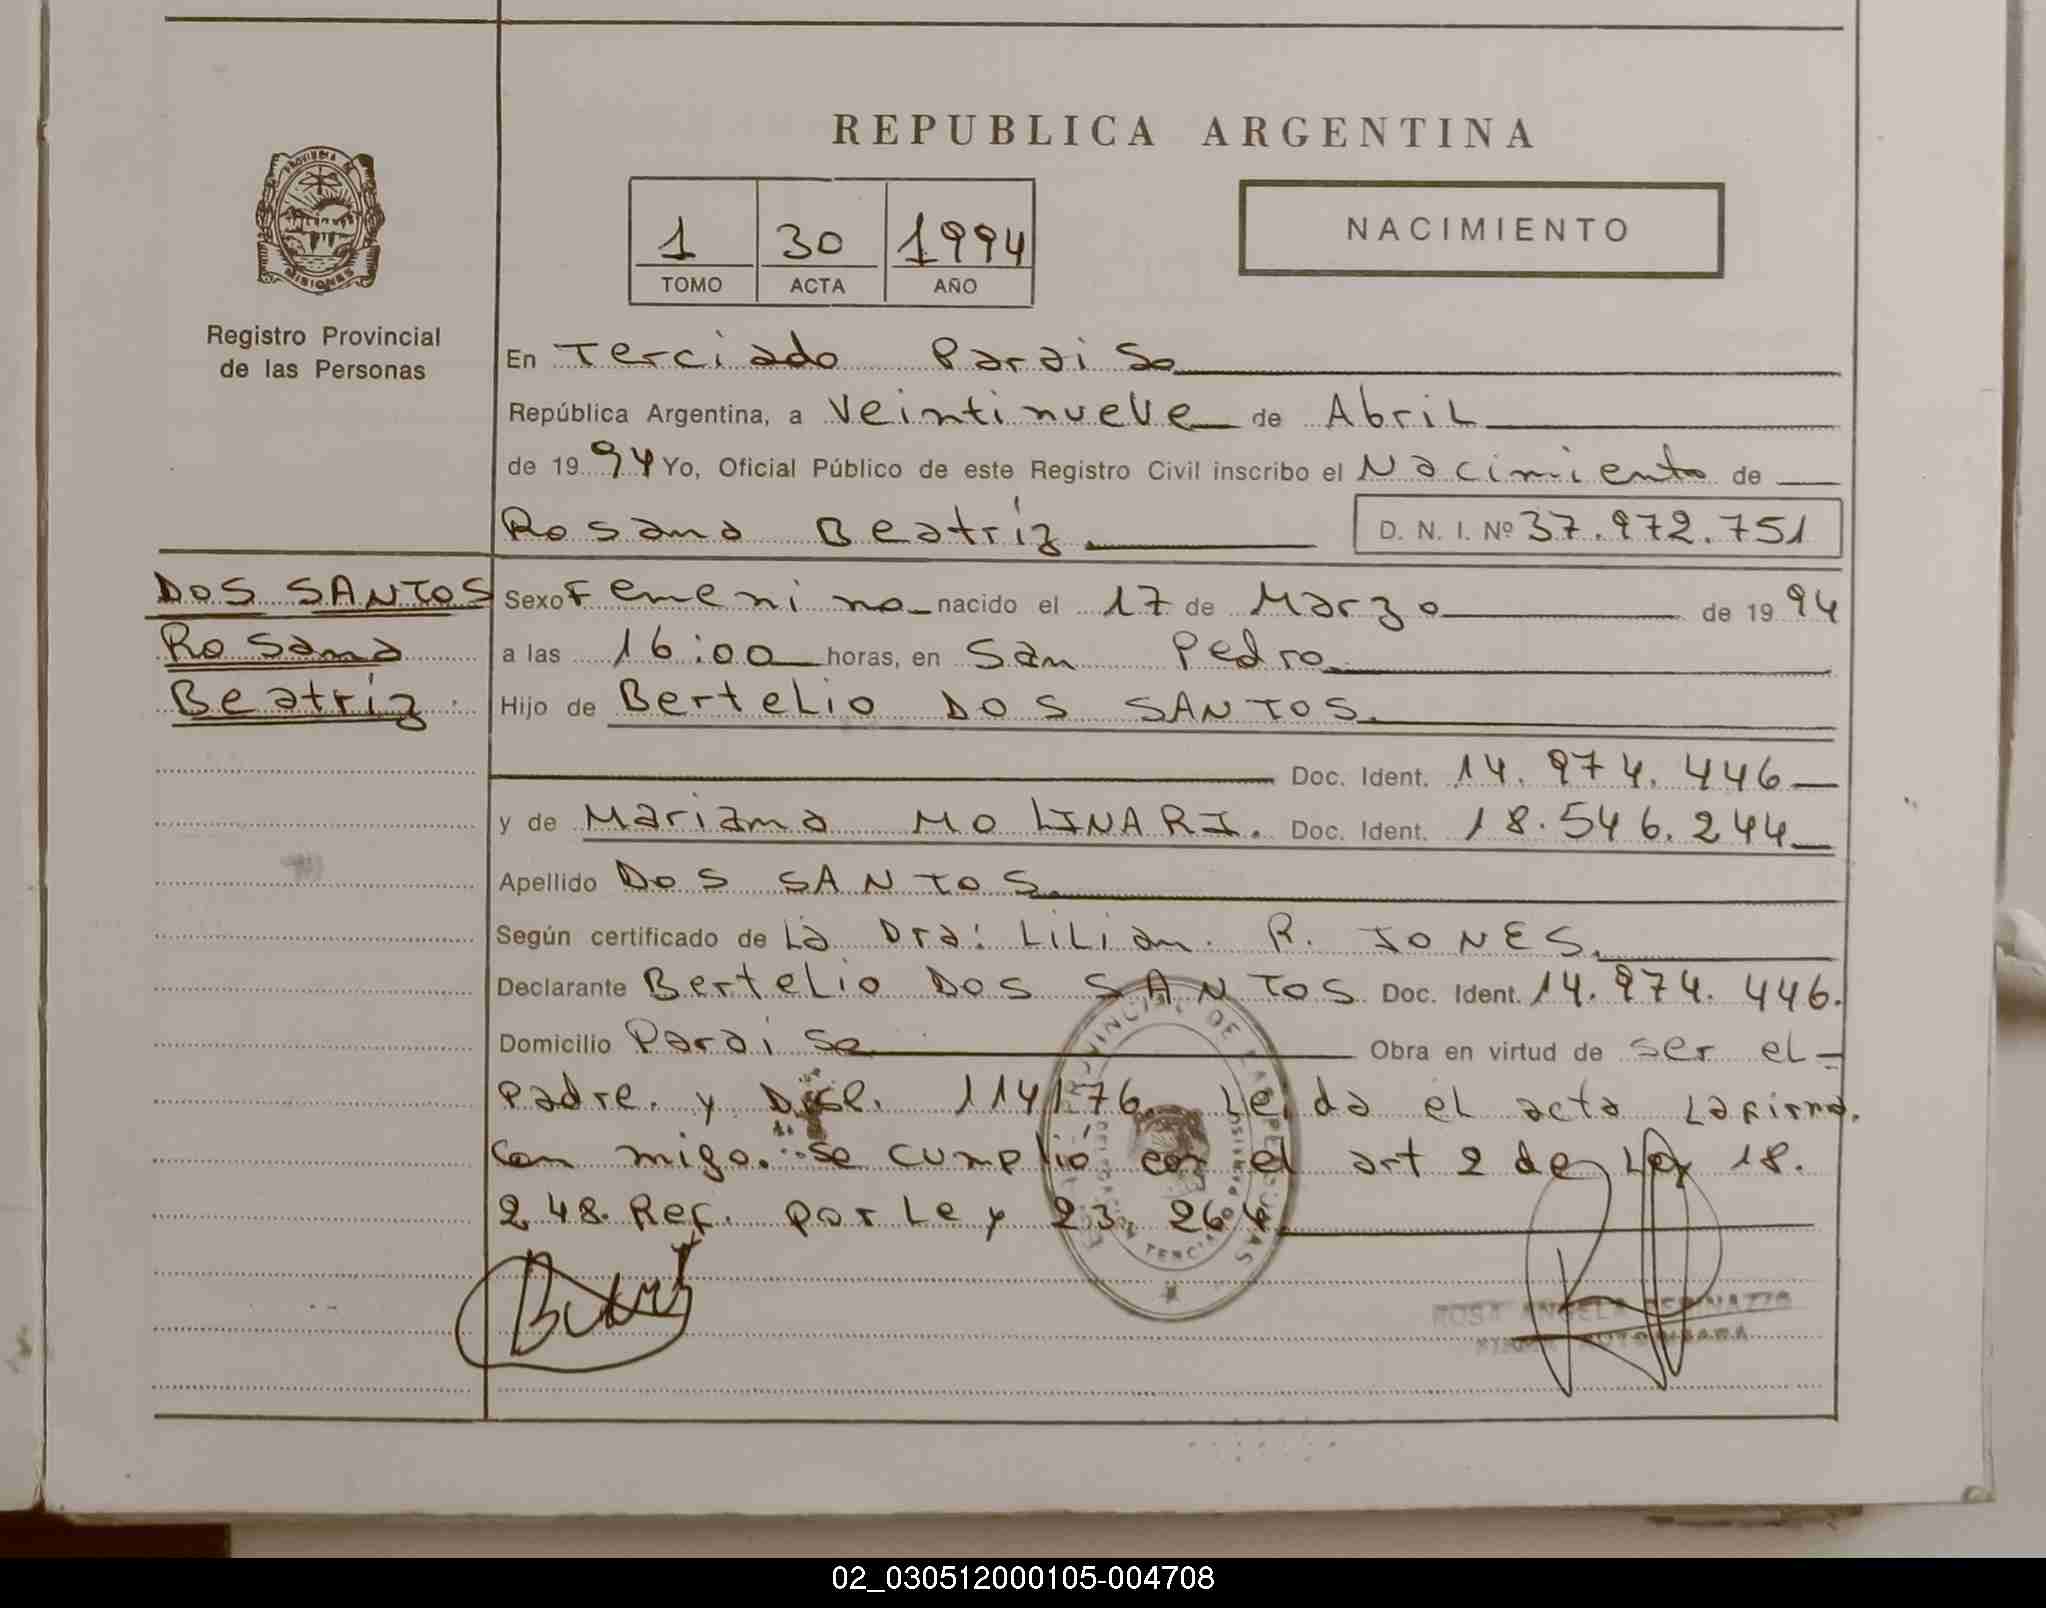 REPUBLICA ARGENTINA
PROVINCIA DE
MISIONES
Registro Provincial
de las Personas
1 30 1994
TOMO ACTA AÑO
NACIMIENTO
En Terciado Paraiso
República Argentina, a Veintinueve de Abril
de 1994 Yo, Oficial Público de este Registro Civil inscribo el Nacimiento de
Rosana Beatríz D. N. I. Nº 37.972.751
DOS SANTOS
Rosana
Beatríz
Sexo Femenino nacido el 17 de Marzo de 1994
a las 16:00 horas, en San Pedro
Hijo de Bertelio DOS SANTOS.
Doc. Ident. 14.974.446
y de Mariana MOLINARI. Doc. Ident. 18.546.244
Apellido DOS SANTOS.
Según certificado de La Dra: Lilian. R. JONES.
Declarante Bertelio DOS SANTOS Doc. Ident. 14.974.446.
Domicilio Paraiso Obra en virtud de ser el
padre. y Disp. 114/76. Leida el acta La firma.
Con migo. Se cumplió con el art 2 de Ley 18.
248. Ref. por Ley 23.264.
ROSA ANGELA ESPINAZZO
FIRMA AUTORIZADA
02_030512000105-004708